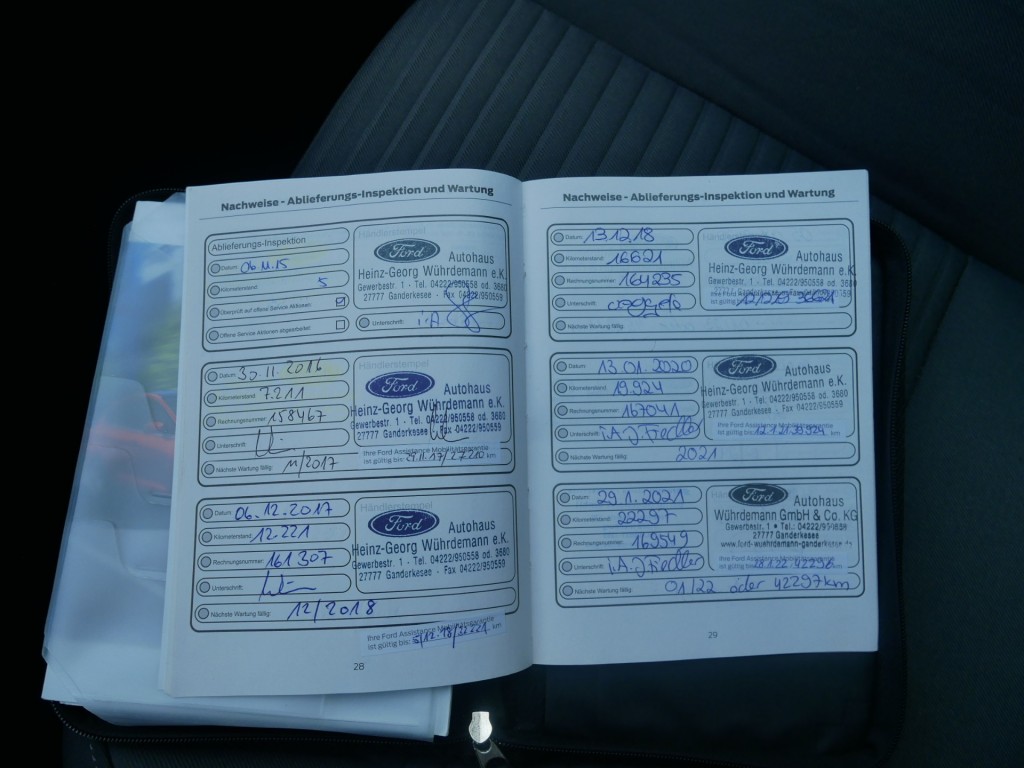 Nachweise - Ablieferungs-Inspektion und Wartung
Ablieferungs-Inspektion
Datum: 06.11.15
Kilometerstand: 5
Überprüft auf offene Service Aktionen:
Offene Service Aktionen abgearbeitet:
Händlerstempel
Ford
Autohaus
Heinz-Georg Wührdemann e.K.
Gewerbestr. 1 - Tel. 04222/950558 od. 3660
27777 Ganderkesee - Fax 04222/950559
Unterschrift: i.A.
Datum: 30.11.2016
Kilometerstand: 7.211
Rechnungsnummer: 158467
Unterschrift:
Nächste Wartung fällig: 11/2017
Händlerstempel
Ford
Autohaus
Heinz-Georg Wührdemann e.K.
Gewerbestr. 1 - Tel. 04222/950558 od. 3660
27777 Ganderkesee - Fax 04222/950559
Ihre Ford Assistance Mobilitätsgarantie
ist gültig bis: 29.11.17/27.210 km
Datum: 06.12.2017
Kilometerstand: 12.221
Rechnungsnummer: 161307
Unterschrift:
Nächste Wartung fällig: 12/2018
Händlerstempel
Ford
Autohaus
Heinz-Georg Wührdemann e.K.
Gewerbestr. 1 - Tel. 04222/950558 od. 3660
27777 Ganderkesee - Fax 04222/950559
Ihre Ford Assistance Mobilitätsgarantie
ist gültig bis: km
28
Nachweise - Ablieferungs-Inspektion und Wartung
Datum: 13.12.18
Kilometerstand: 16621
Rechnungsnummer: 164235
Unterschrift:
Nächste Wartung fällig:
Ford
Autohaus
Heinz-Georg Wührdemann e.K.
Gewerbestr. 1 - Tel. 04222/950558 od. 3660
27777 Ganderkesee - Fax 04222/950559
Datum: 13.01.2020
Kilometerstand: 19.924
Rechnungsnummer: 167041
Unterschrift: i.A. J Fiedler
Nächste Wartung fällig: 2021
Ford
Autohaus
Heinz-Georg Wührdemann e.K.
Gewerbestr. 1 - Tel. 04222/950558 od. 3660
27777 Ganderkesee - Fax 04222/950559
Datum: 29.1.2021
Kilometerstand: 22297
Rechnungsnummer: 169549
Unterschrift: i.A. J Fiedler
Nächste Wartung fällig: 01/22 oder 42297km
Ford
Autohaus
Wührdemann GmbH & Co. KG
Gewerbestr. 1 • Tel.: 04222/950558
27777 Ganderkesee
www.ford-wuehrdemann-ganderkesee.de
Ihre Ford Assistance Mobilitätsgarantie
ist gültig bis: 28.1.22 42296 km
29